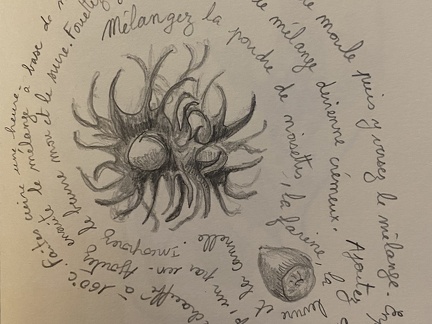 Mélangez la poudre de noisettes, la farine, la levure et la cannelle. Incorporez
le beurre mou et le sucre. Fouettez
le mélange devienne crémeux. Ajoutez
un par un. Ajoutez ensuite le mélange à base de
moule puis y versez le mélange.
chauffé à 160°C. Faites cuire une heure.